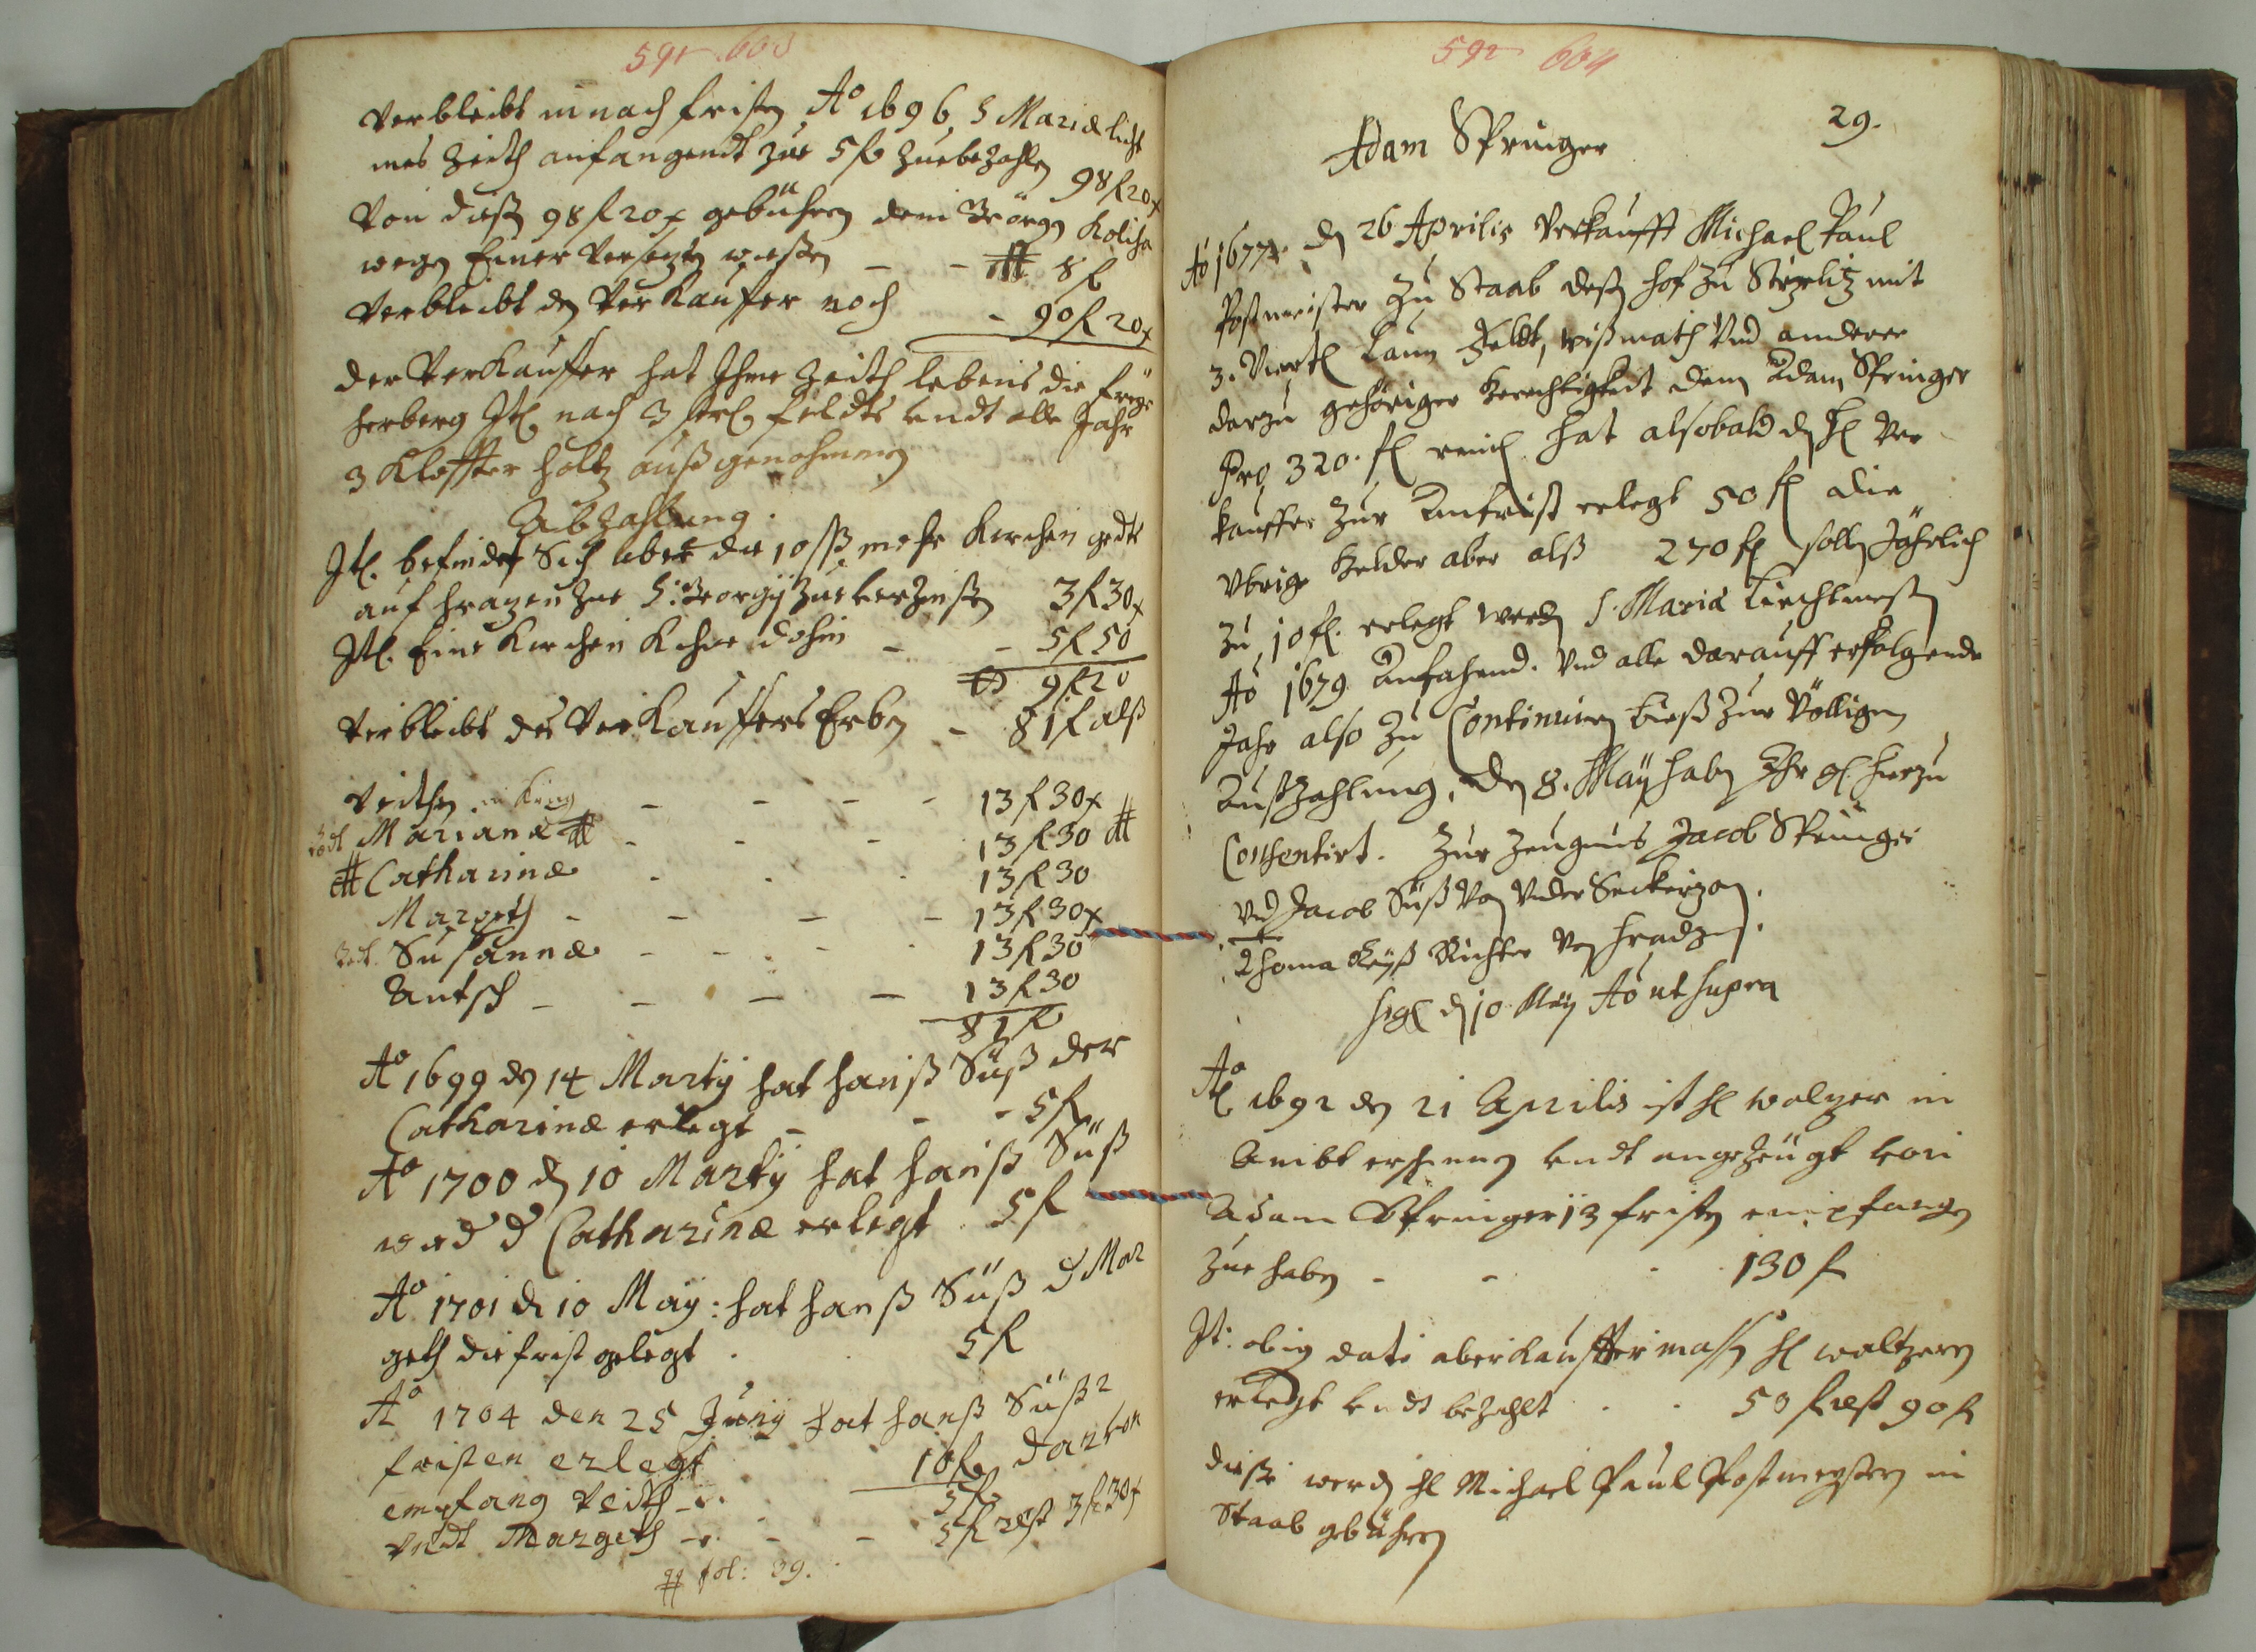 591 603
Verbleibt in nach fristen Aº 1696 S Mariæ licht
mes Zeith anfangendt zue 5 fl zuebezahlen 98 fl 20 x
Von diesen 98 fl 20 x gebühren dem Geörg Kolisch
wegen Einer versezten wiesen - - 8 fl
Verbleibt den Verkaufer noch - 90 fl 20 x
der Verkauffer hat Ihme Zeith lebens die freye
herberg Itl nach 3 feldts undt alle Jahr
3 Kloffter holtz außgenohmen
Abzahlung.
Itl. befindet Sich über die 10 ßß mehr Kirchen geldt
auf hrazen zue S: Georgÿ zueverzinsen 3 fl 30 x
Itl. Eine Kirchen Kuhe dohin - - 5 fl 50
9 fl 20
Verbleibt des Verkauffers Erben - 81 fl alß
Veithen - - - - 13 fl 30 x
Marianæ - - - 13 fl 30
Catharinæ - - - 13 fl 30
Margeth - - - - 13 fl 30 x
Susannæ - - - - 13 fl 30
Antsch - - - - 13 fl 30
81 fl
Aº 1699 den 14 Martÿ hat hanß Süß der
Catharinæ erlegt - - - 5 fl
Aº 1700 den 10 Martÿ hat hanß Süß
d Catharinæ erlegt . 5 fl
Aº 1701 den 10 Maÿ: hat hanß Süß d Mar
geth die frist gelegt . . 5 fl
Aº 1704 den 25 Junÿ hat hanß Süß 2
fristen erlegt 10 fl darvon
empfang Veith - 5 fl
undt Margeth - - - 5 fl rest 3 fl 30 x
fol: 39.
592 604
29.
Adam Springer
Aº 1677. den 26 Aprilis Verkaufft Michael Paul
Postmeister Zu Staab dessen hof Zu Sirzlitz mit
3. Viertl Laun Feldt, wißmath Vnd anderer
darzu gehöriger Gerechtigkeit dem Adam Springer
Pro 320. fl reinl. hat alsobald der hl Ver
kauffer Zur Antrist erlegt 50 fl die
Vbrige Gelder aber alß 270 fl sollen Jährlich
Zu 10 fl. erlegt werden S. Mariæ Liechtmessen
Aº 1679 Anfahend. Vnd alle darauff erfolgende
Jahr also Zu Continuiren bieß Zur Völligen
Außzahlung, den 8. Maÿ haben Ihr gl. hierzu
Consentirt. Zur Zeugnus Jacob Springer
Vnd Jacob Süß Von Vnder Seckerzan.
Thoma Reÿß Richter Von hradzen.
Sigl den 10 Maÿ Aº ut supra
Aº 1692 den 21 Aprilis ist hl walzer in
Ambt erschienen undt angezeugt von
Adam Springer 13 fristen empfangen
Zue haben - - - 130 fl
It: obig dato aber Kauffermassen hl waltzern
erlegt undt bezahlt . . 50 fl rest 90 fl
diese werden hl Michael Paul Postmeystern in
Staab gebühren